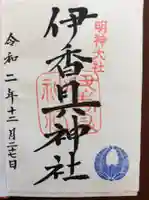 明神大社
伊香具神社
令和二年十二月二十七日